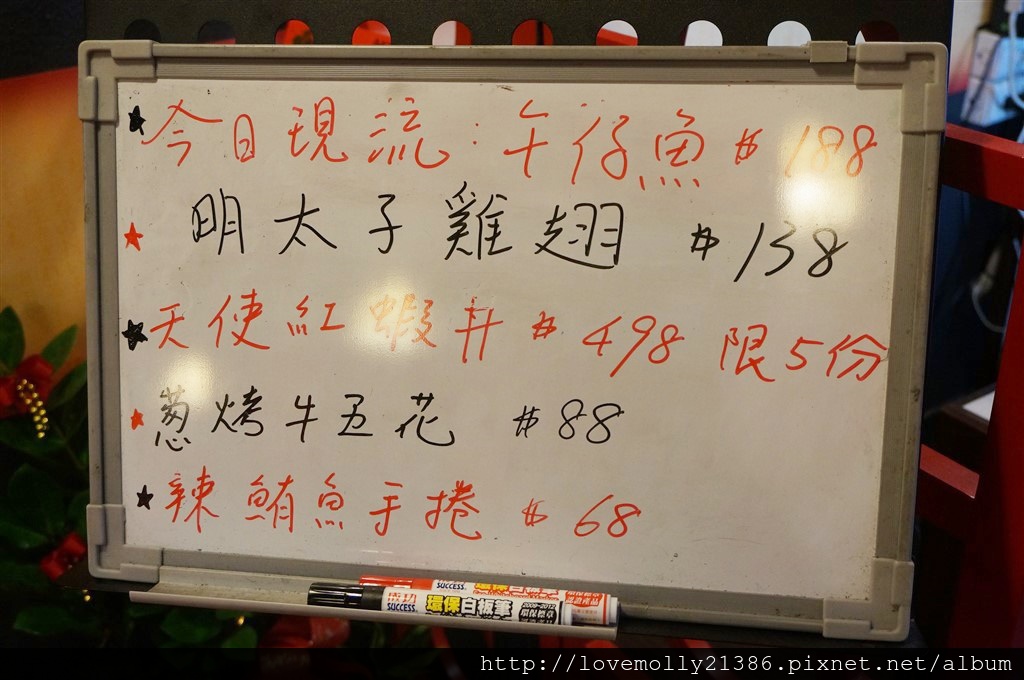 ★今日現流:午仔魚 # 188
★明太子雞翅 # 138
★天使紅蝦丼 # 498 限5份
★蔥烤牛五花 # 88
★辣鮪魚手捲 # 68
SUCCESS
成功
SUCCESS
環保白板筆
http://lovemolly21386.pixnet.net/album